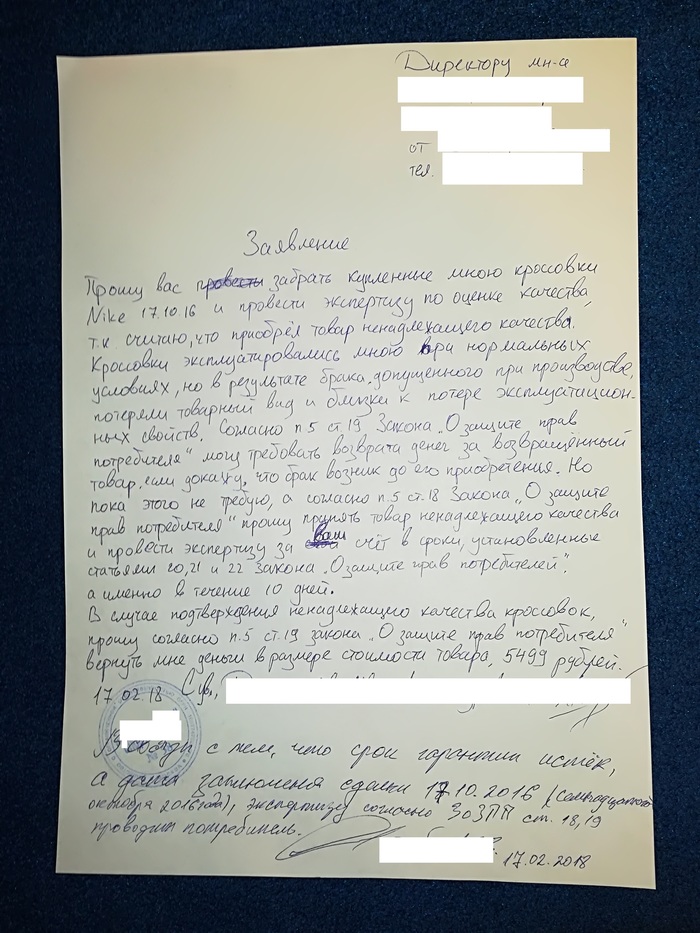 Директору мн-а
от
тел.
Заявление
Прошу вас провести забрать купленные мною кроссовки
Nike 17.10.16 и провести экспертизу по оценке качества,
т.к считаю, что приобрёл товар ненадлежащего качества.
Кроссовки эксплуатировались мною при нормальных
условиях, но в результате брака, допущенного при производстве,
потеряли товарный вид и близки к потере эксплуатацион-
ных свойств. Согласно п.5 ст.19 Закона „О защите прав
потребителя" могу требовать возврата денег за возвращённый
товар, если докажу, что брак возник до его приобретения. Но
пока этого не требую, а согласно п.5 ст.18 Закона „О защите
прав потребителя" прошу принять товар ненадлежащего качества
и провести экспертизу за ваш счёт в сроки, установленные
статьями 20,21 и 22 Закона „О защите прав потребителей",
а именно в течение 10 дней.
В случае подтверждения ненадлежащего качества кроссовок,
прошу согласно п.5 ст.19 закона „О защите прав потребителя"
вернуть мне деньги в размере стоимости товара, 5499 рублей.
17.02.18
В связи с тем, что срок гарантии истёк,
а дата заключения сделки 17.10.2016 (семнадцатого
октября 2016 года), экспертизу согласно ЗоЗПП ст. 18,19
проводит потребитель.
17.02.2018